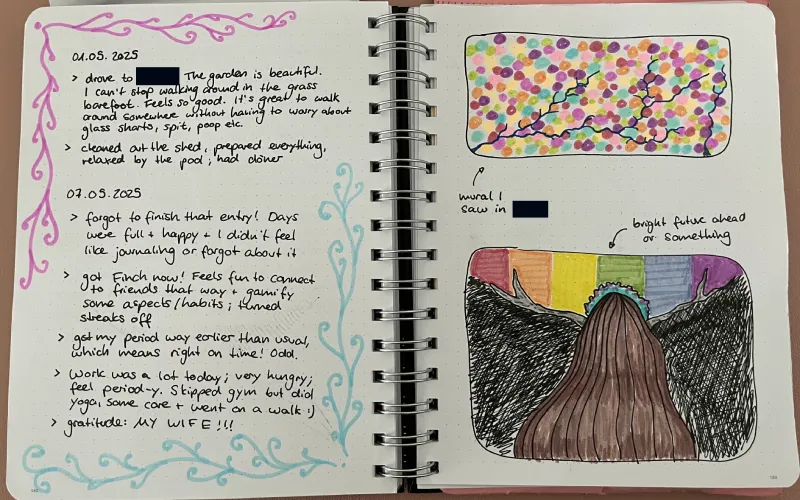 01.05.2025
> drove to The garden is beautiful.
I can't stop walking around in the grass
barefoot. Feels so good. It's great to walk
around somewhere without having to worry about
glass shards, spit, poop etc.
> cleaned out the shed, prepared everything,
relaxed by the pool; had döner
07.05.2025
> forgot to finish that entry! Days
were full + happy + I didn't feel
like journaling or forgot about it
> got Finch now! Feels fun to connect
to friends that way + gamify
some aspects/habits; turned
streaks off
> got my period way earlier than usual,
which means right on time! Odd.
> Work was a lot today; very hungry;
feel period-y. Skipped gym but did
yoga, some core + went on a walk :)
> gratitude: MY WIFE!!!
mural I
saw in
bright future ahead
or something